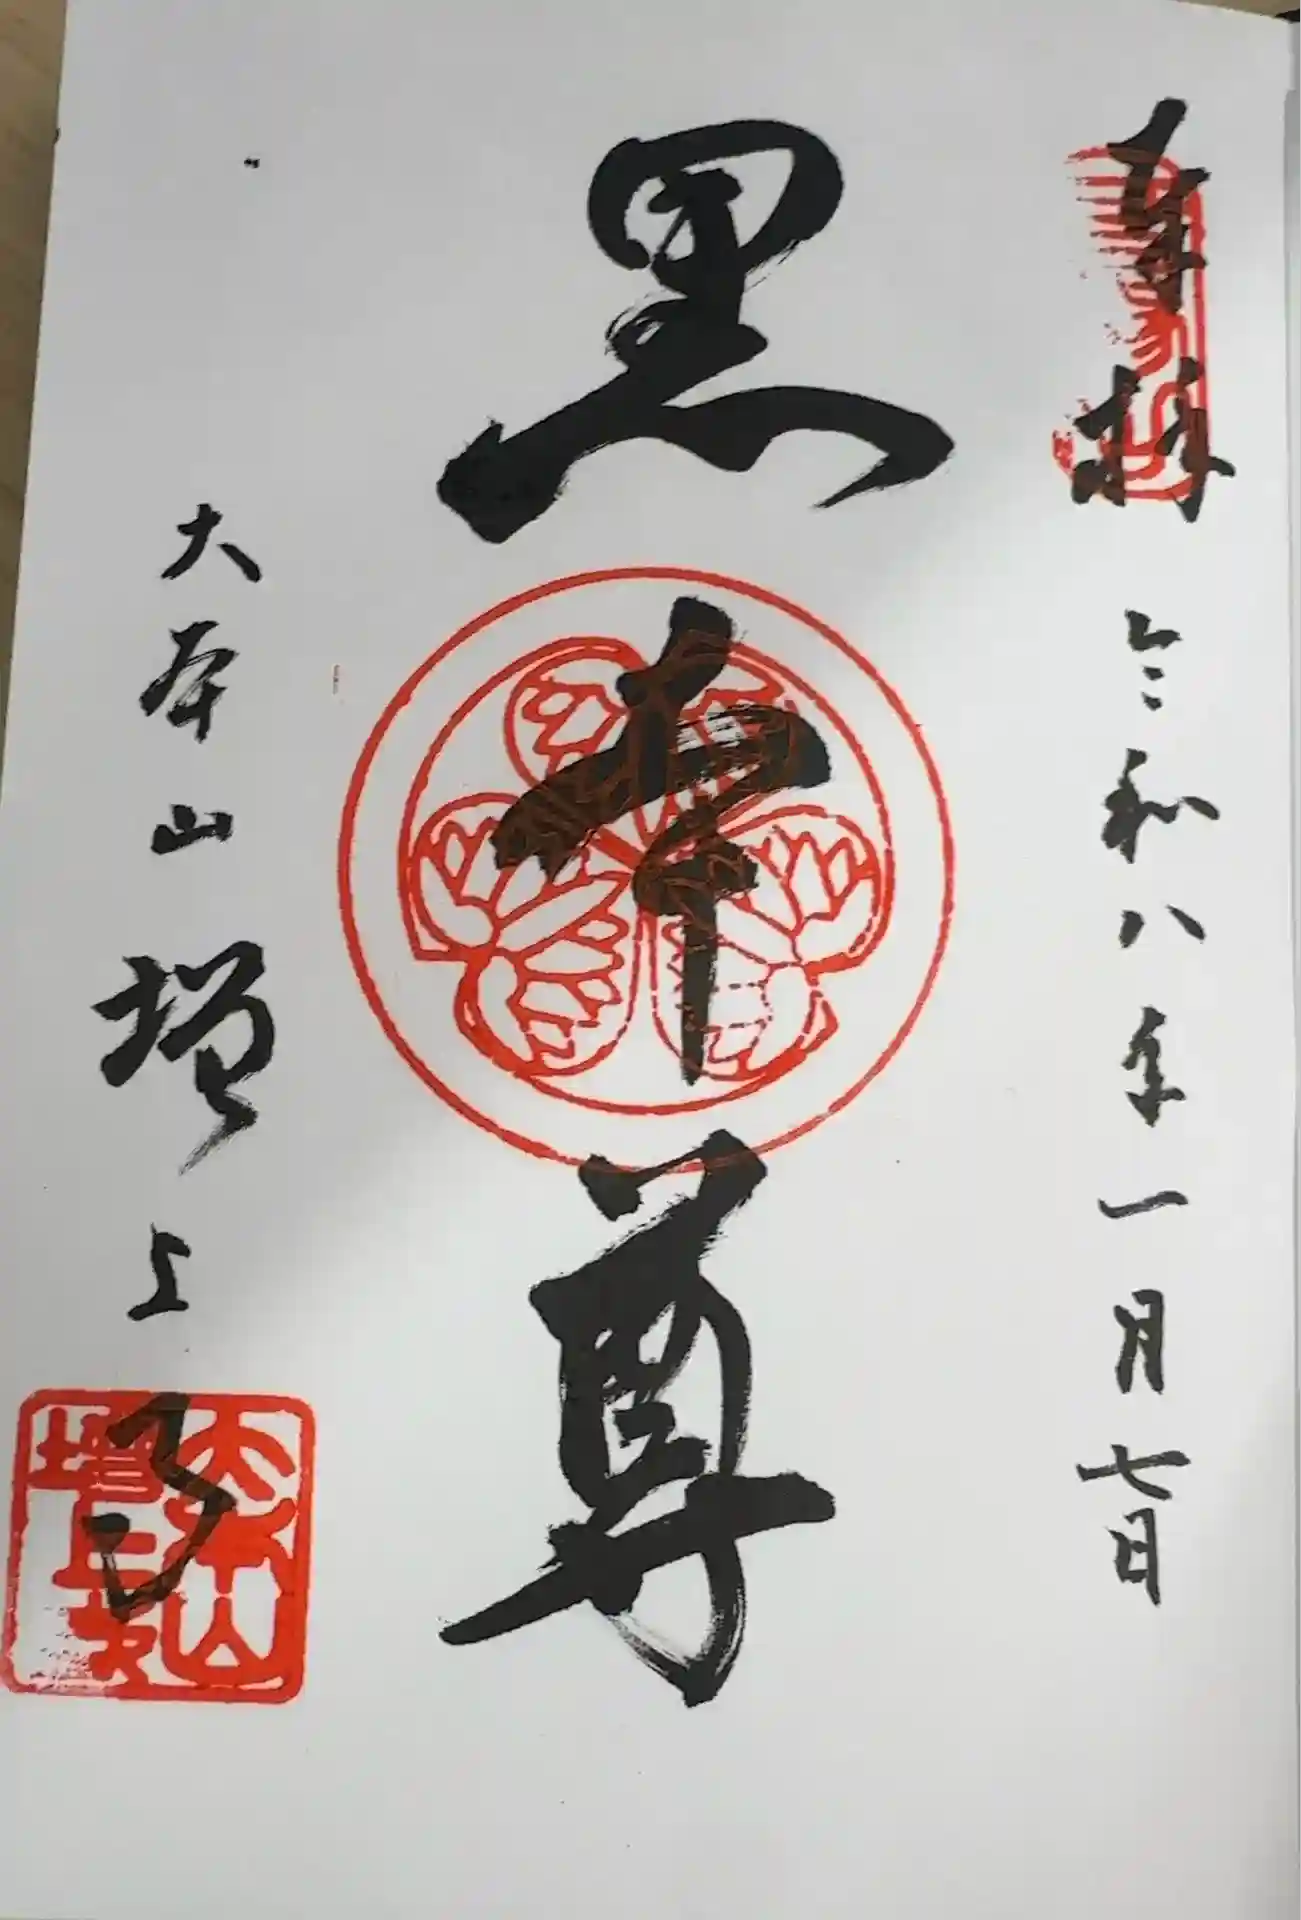 奉拝 令和八年一月七日
黒本尊
大本山増上寺
大本山
増上寺